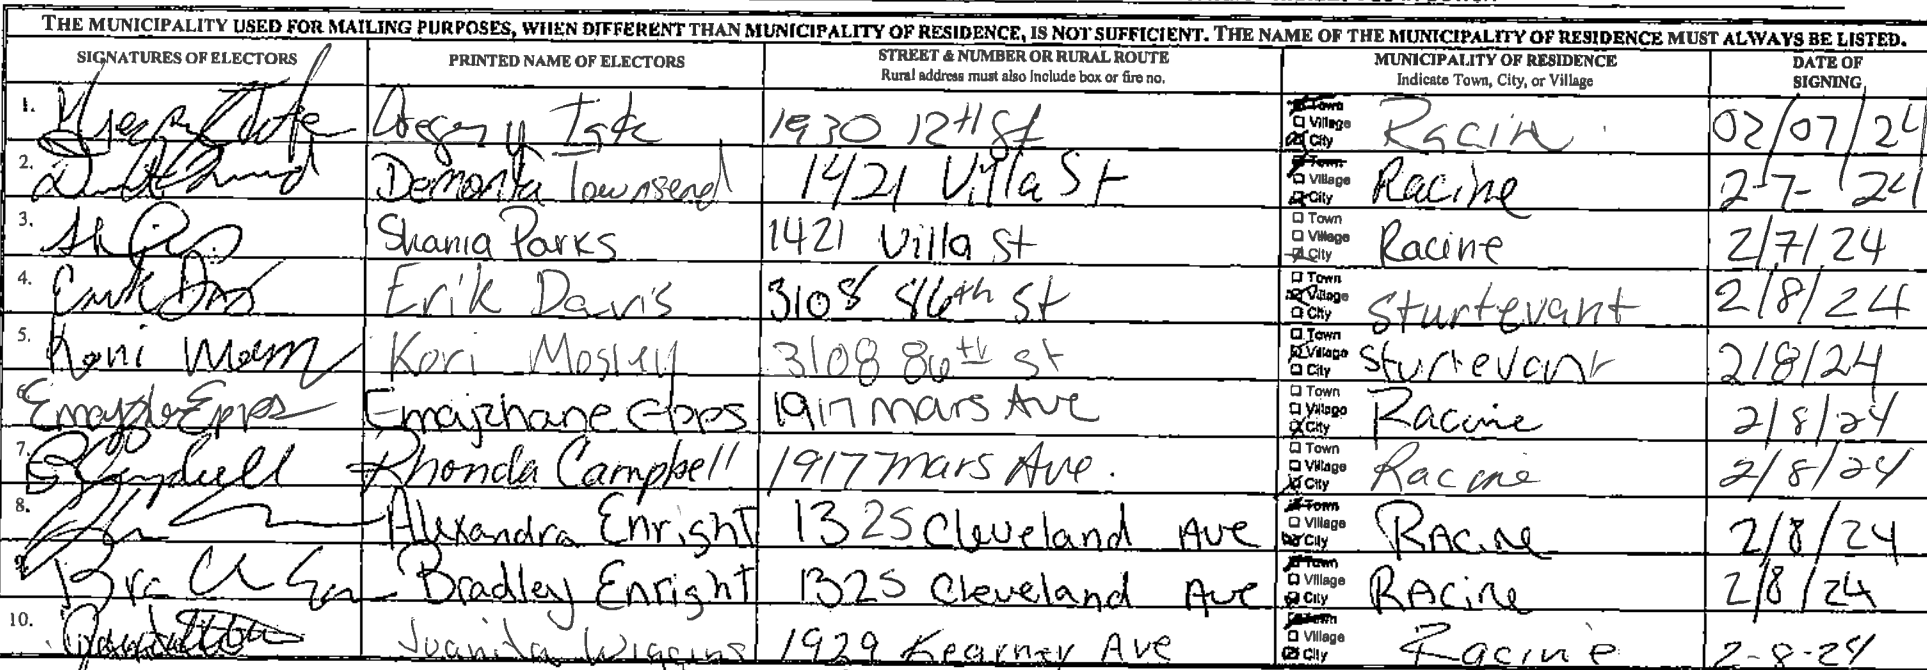 THE MUNICIPALITY USED FOR MAILING PURPOSES, WHEN DIFFERENT THAN MUNICIPALITY OF RESIDENCE, IS NOT SUFFICIENT. THE NAME OF THE MUNICIPALITY OF RESIDENCE MUST ALWAYS BE LISTED.
SIGNATURES OF ELECTORS PRINTED NAME OF ELECTORS STREET & NUMBER OR RURAL ROUTE MUNICIPALITY OF RESIDENCE DATE OF
Rural address must also include box or fire no. Indicate Town, City, or Village SIGNING
1. Gregory Tate 1930 12th St Town Village City Racin 02/07/24
2. Demonta Townsend 1421 Villa St Town Village City Racine 2-7-24
3. Shania Parks 1421 Villa St Town Village City Racine 2/7/24
4. Erik Davis 3108 86th St Town Village City Sturtevant 2/8/24
5. Kori Mosley 3108 86th St Town Village City Sturtevant 2/8/24
6. Emajzhane Epps 1917 Mars Ave Town Village City Racine 2/8/24
7. Rhonda Campbell 1917 Mars Ave. Town Village City Racine 2/8/24
8. Alexandra Enright 1325 Cleveland Ave Town Village City RAcine 2/8/24
9. Bradley Enright 1325 Cleveland Ave Town Village City RAcine 2/8/24
10. Juanita Wiggins 1929 Kearney Ave Town Village City Racine 2-8-24